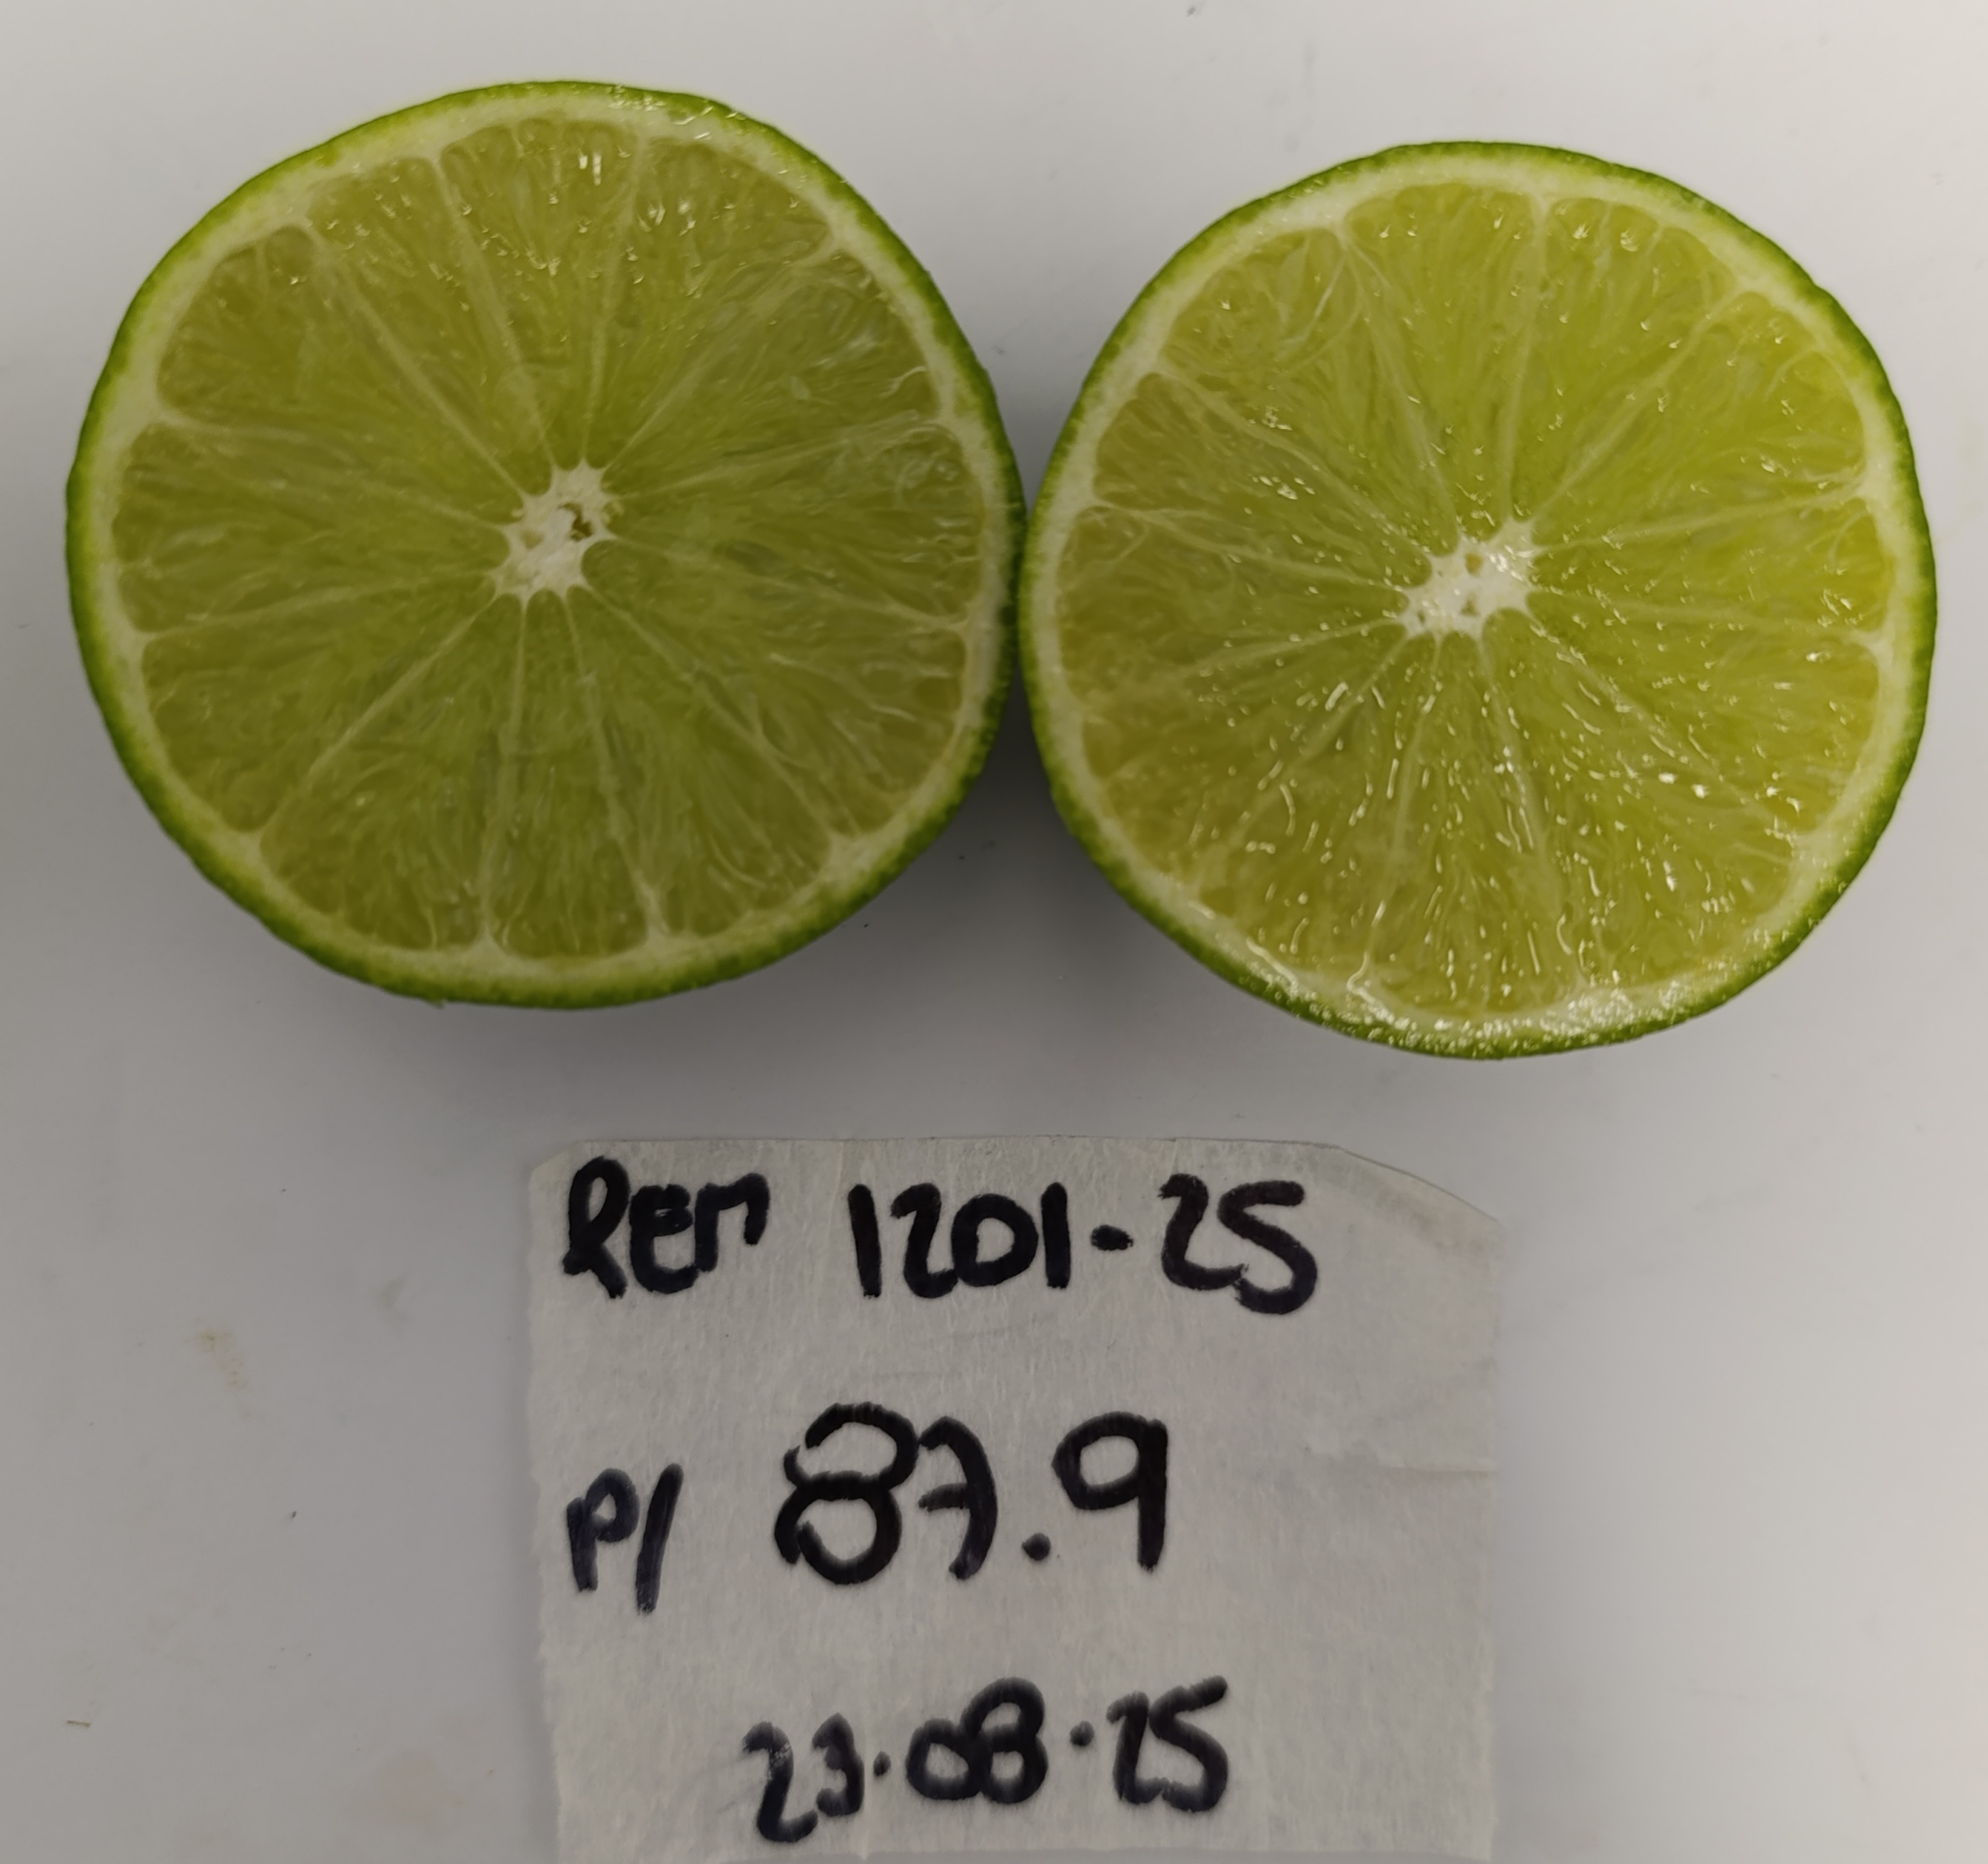 REM 1201-25
P/ 87.9
23.08.25